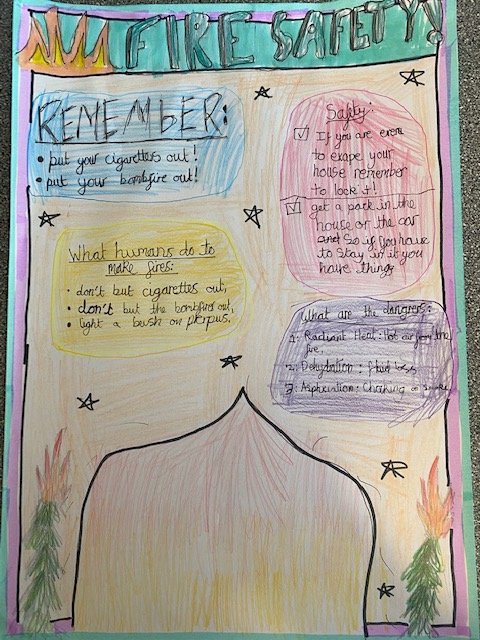 FIRE SAFETY!
REMEMBER:
• put your cigarettes out!
• put your bombfire out!
Safty:
If you are
to exape your
house remember
to lock it!
get a pack in the
house or the car
and So if you have
to stay in it you
have things
What humans do to
make fires:
• don't but cigarettes out,
• don't but the bombfire out,
• light a bush on perpus.
What are the dangrers:
1: Radiant Heat: Hot air from the
fire,
2: Dehydration: fluid loss
3: Asphixiation: Choking on smoke